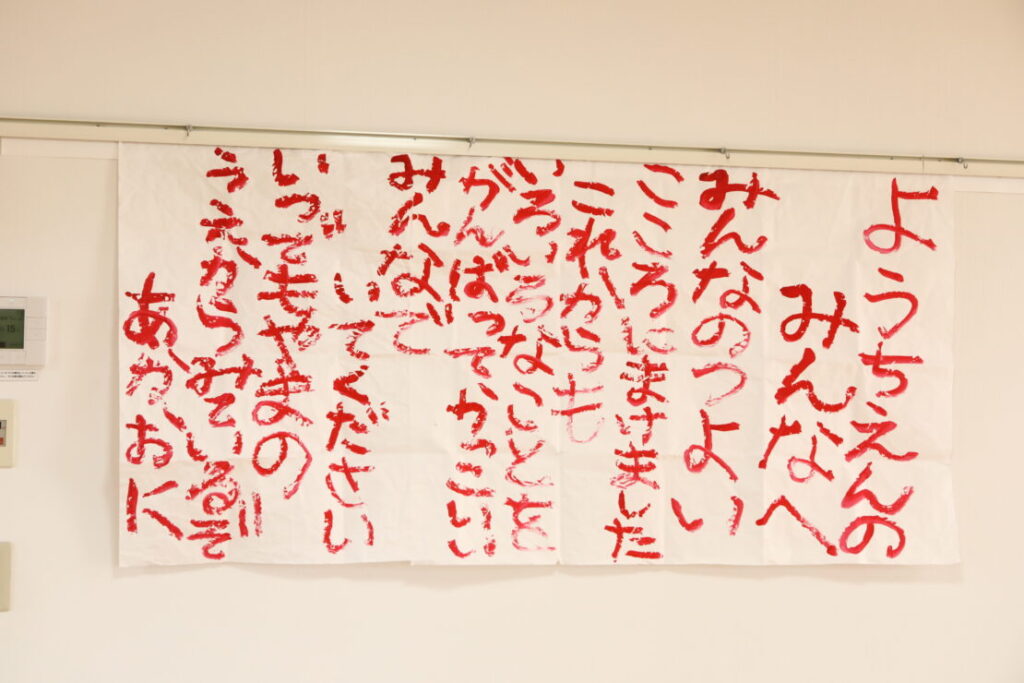 ようちえんの
みんなへ
みんなのつよい
こころにまけました
これからも
いろいろなことを
がんばって、かっこいい
みんなで
いてください
いつでもやまの
うえからみているぞ!!
あかおに